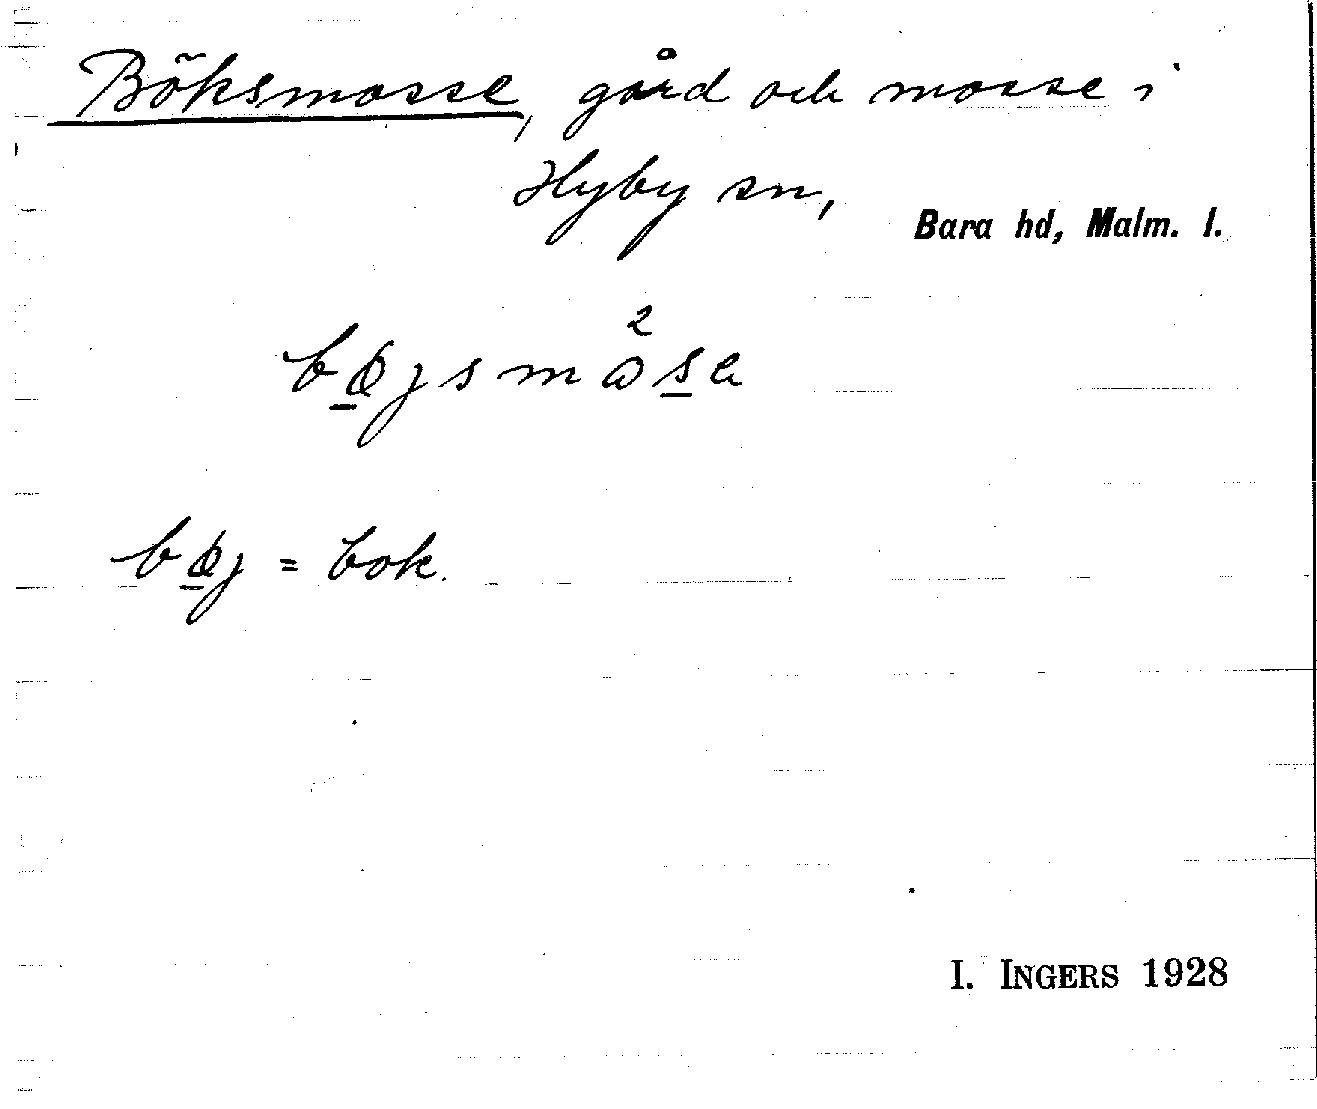 Böksmosse, gård och mosse i
Hyby sn,
Bara hd, Malm. l.
bø̲jsmås̲a
bø̲j = bok.
I. INGERS 1928